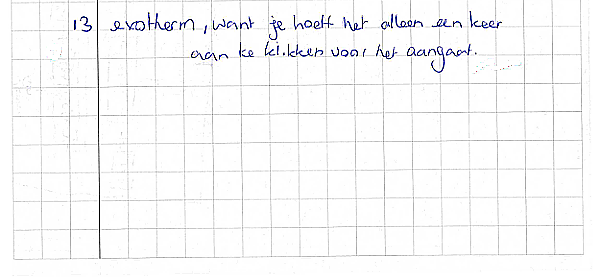 13 exotherm, want je hoeft het alleen een keer
aan te klikken voor het aangaat.